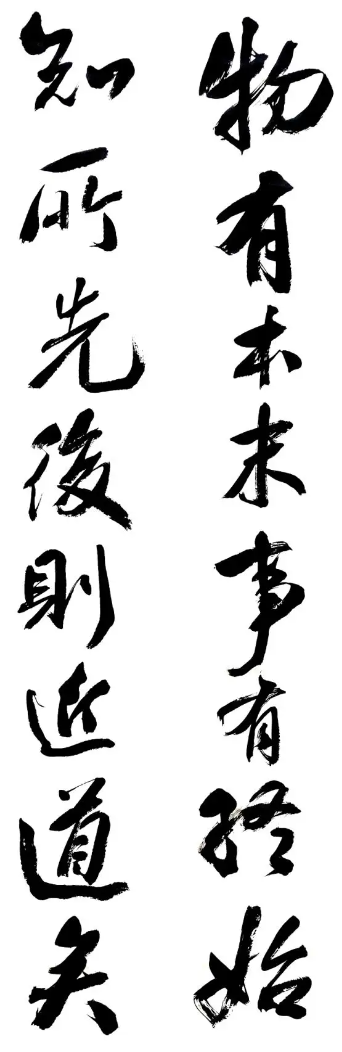 物有本末事有終始
知所先後則近道矣